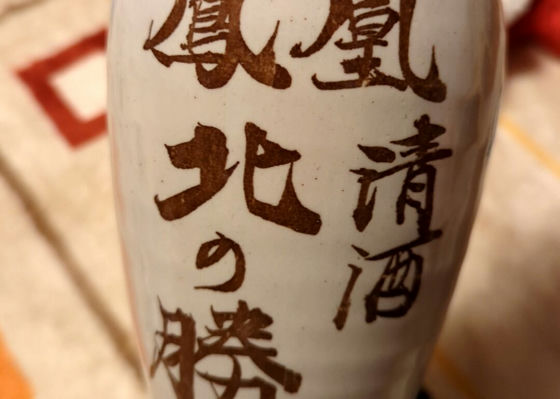 鳳凰
清酒
北の勝